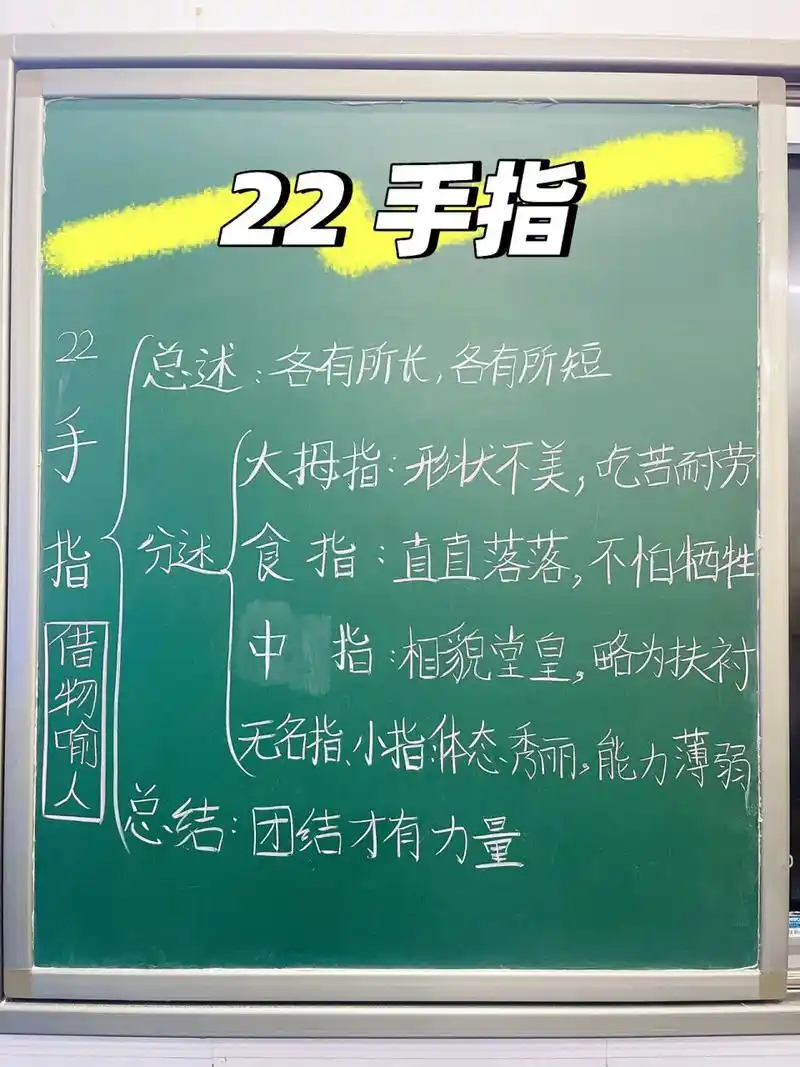 22 手指
22手指
借物喻人
总述：各有所长，各有所短
分述
大拇指：形状不美，吃苦耐劳
食指：直直落落，不怕牺牲
中指：相貌堂皇，略为扶衬
无名指、小指：体态秀丽，能力薄弱
总结：团结才有力量